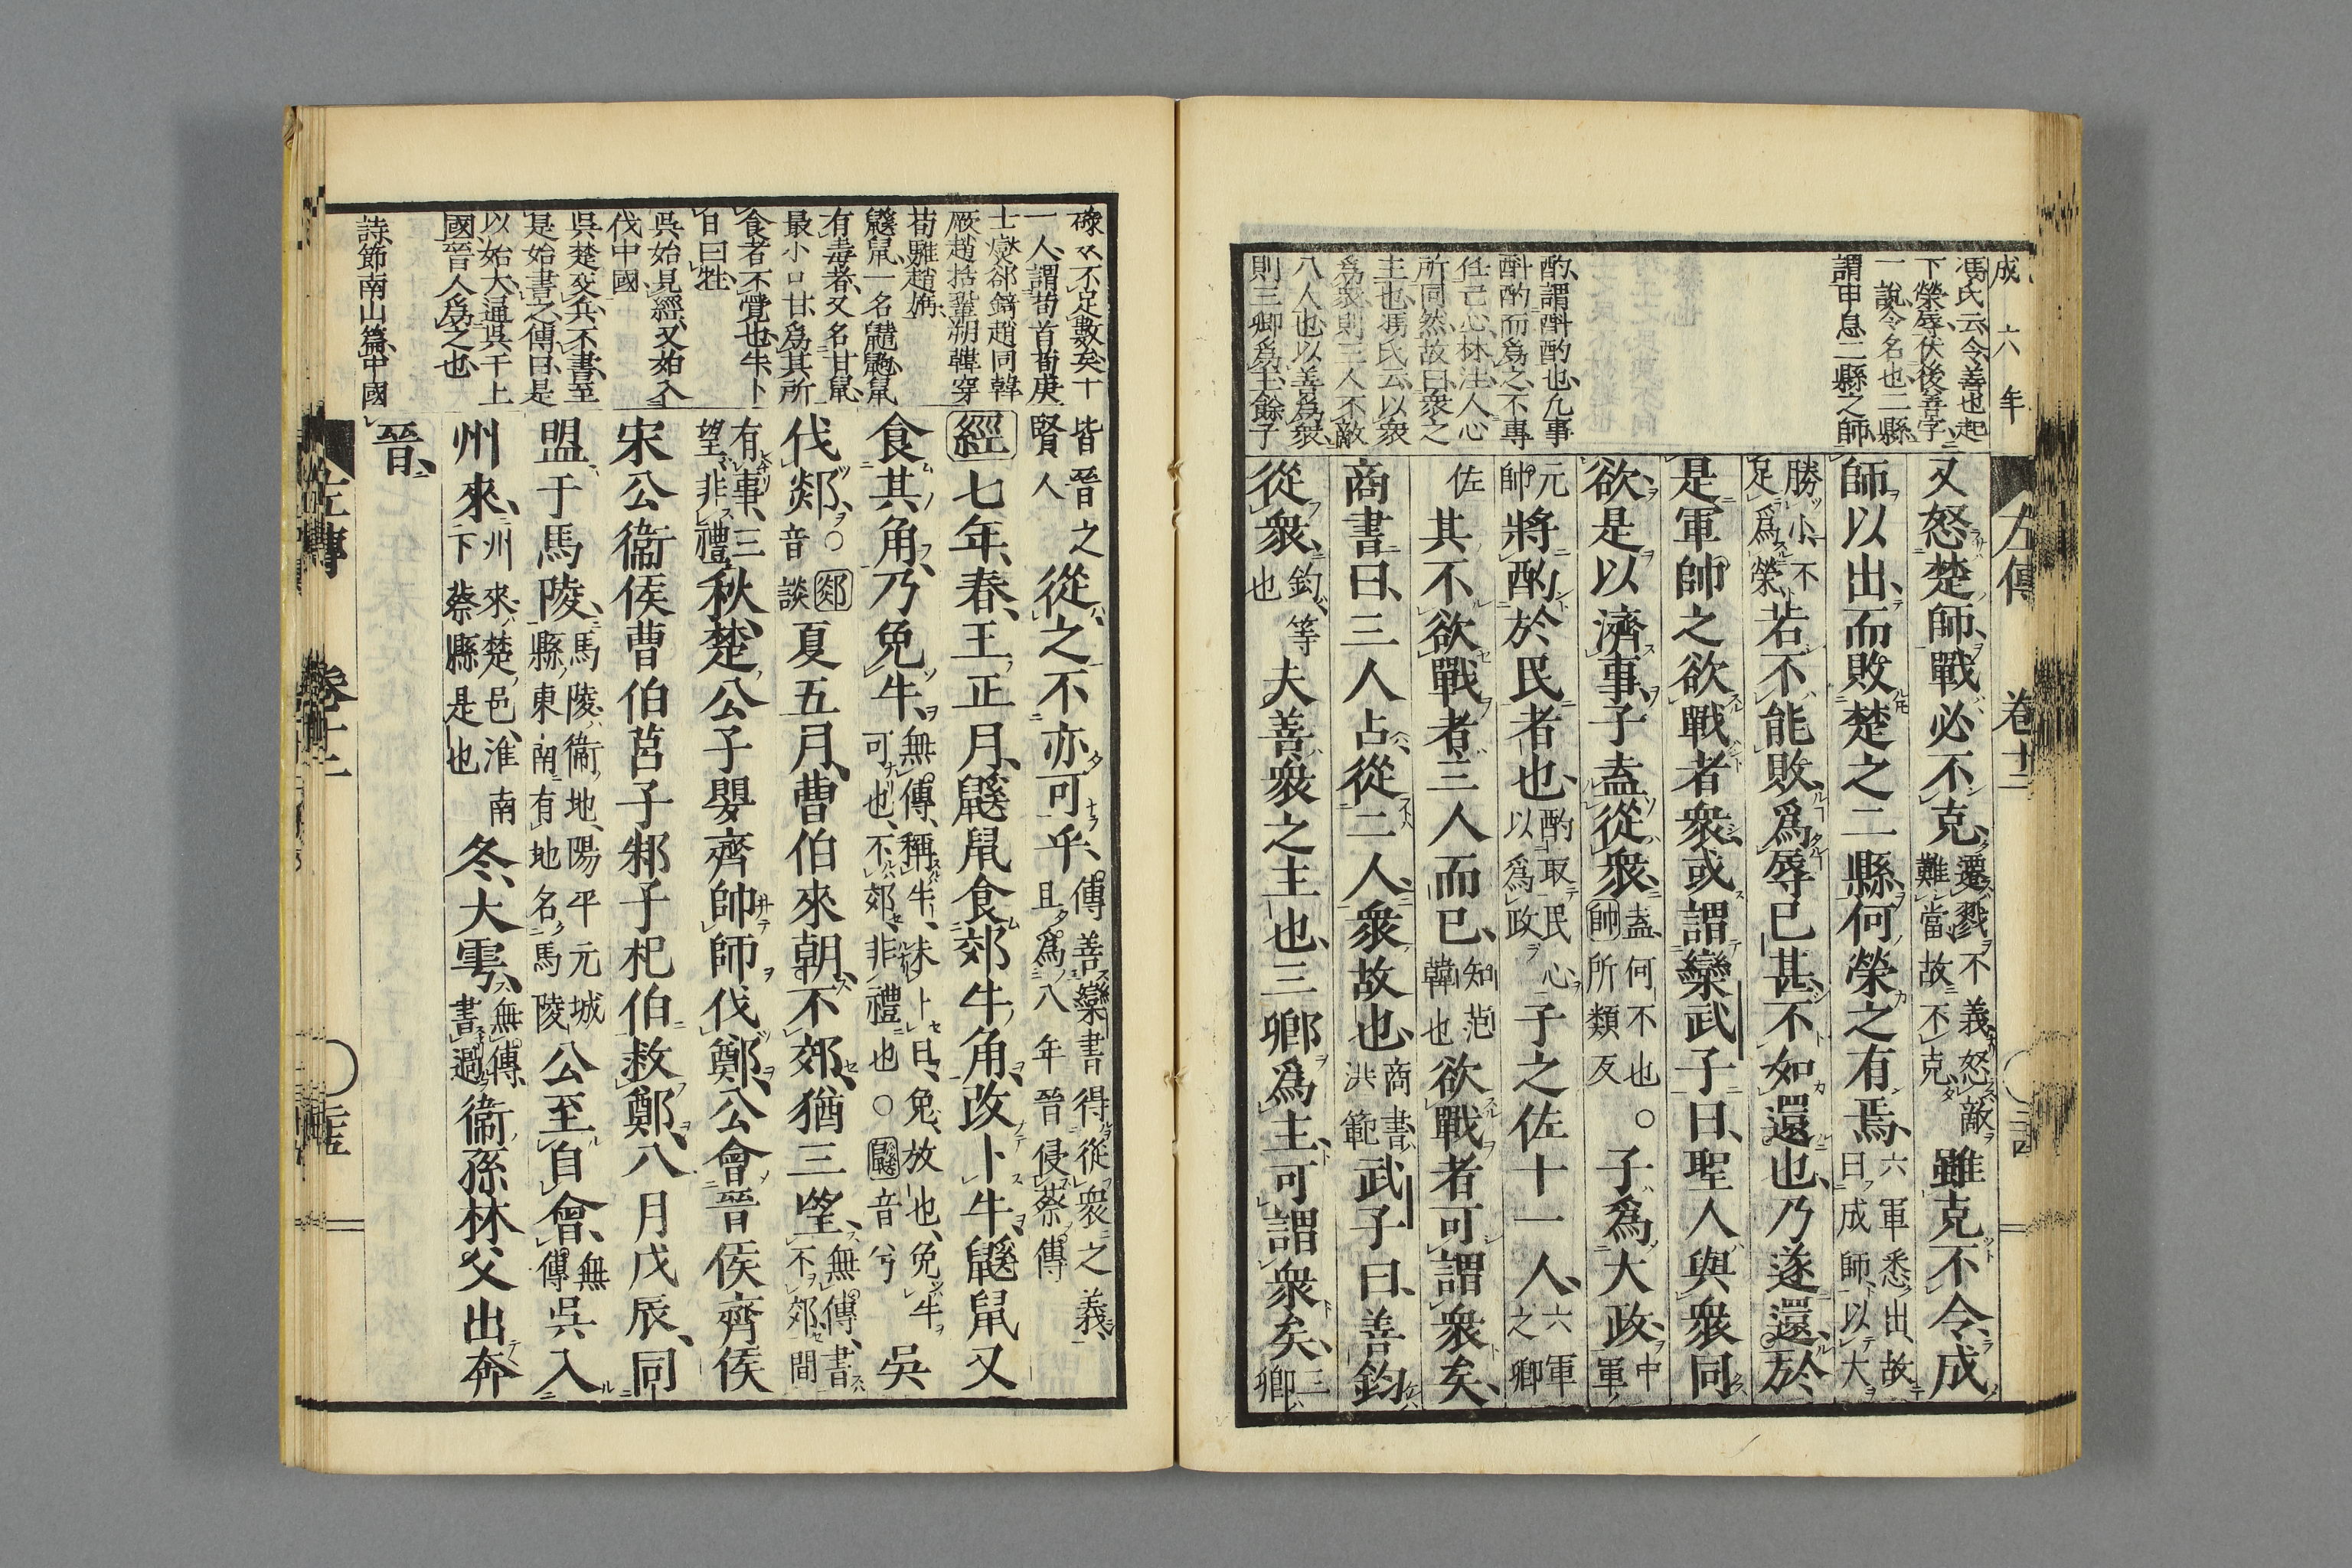 成六年
左傳 卷十二 三四
馮氏云令善也起
下榮辱伏後善字
一說令名也二縣
謂申息二縣之師
酌謂斟酌也凡事
斟酌而爲之不專
任己心林注人心
所同然故曰衆之
主也馮氏云以衆
爲衆則三人不敵
八人也以善爲衆
則三卿爲主餘子
又怒楚師戰必不克遷戮不義怒敵
難當故不克雖克不令成
師以出而敗楚之二縣何榮之有焉六軍悉出故
曰成師以大
勝小不
足爲榮若不能敗爲辱已甚不如還也乃遂還於
是軍帥之欲戰者衆或謂欒武子曰聖人與衆同
欲是以濟事子盍從衆盍何不也
帥所類反○子爲大政中軍
元
帥將酌於民者也酌取民心
以爲政子之佐十一人六軍
之卿
佐其不欲戰者三人而已知范
韓也欲戰者可謂衆矣
商書曰三人占從二人衆故也商書
洪範武子曰善鈞
從衆鈞等
也夫善衆之主也三卿爲主可謂衆矣三
卿
碌々不足數矣十
一人謂荀首荀庚
士燮郤錡趙同韓
厥趙括鞏朔韓穿
荀騅趙旃
鼷鼠一名䶅鼩鼠
有毒者又名甘鼠
最小口甘爲其所
食者不覺也牛卜
日曰牲
吳始見經又始入
伐中國
吳楚交兵不書至
是始書之傳曰是
以始大通吳于上
國晉人爲之也
詩節南山篇中國
皆晉之
賢人從之不亦可乎傳善欒書得從衆之義
且爲八年晉侵蔡傳
經七年春王正月鼷鼠食郊牛角改卜牛鼷鼠又
食其角乃免牛無傳稱牛未卜日免放也免牛
可也不郊非禮也○鼷音兮吳
伐郯○郯
音談夏五月曹伯來朝不郊猶三望無傳書
不郊間
有事三
望非禮秋楚公子嬰齊帥師伐鄭公會晉侯齊侯
宋公衞侯曹伯莒子邾子杞伯救鄭八月戊辰同
盟于馬陵馬陵衞地陽平元城
縣東南有地名馬陵公至自會無
傳吳入
州來州來楚邑淮南
下蔡縣是也冬大雩無傳
書過衞孫林父出奔
晉
左傳 卷十二